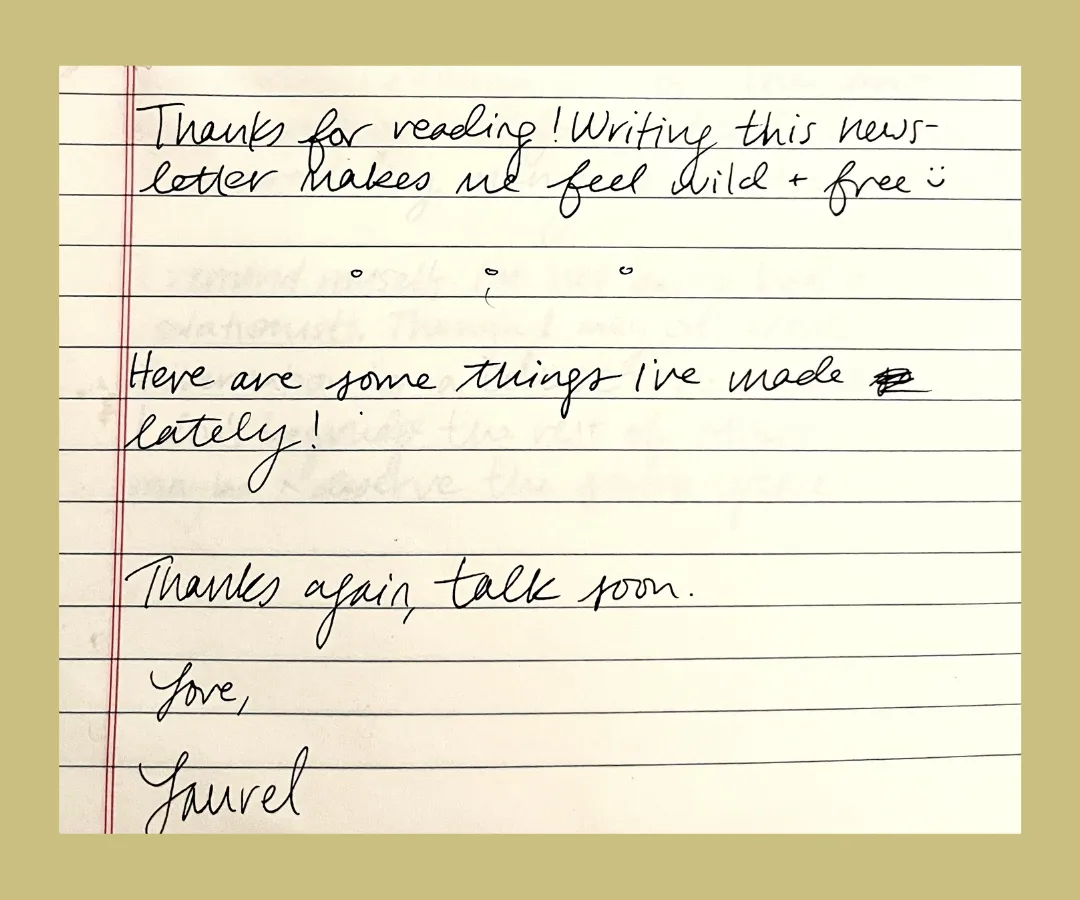 Thanks for reading! Writing this news-
letter makes me feel wild + free ü
Here are some things I've made
lately!
Thanks again, talk soon.
Love,
Laurel